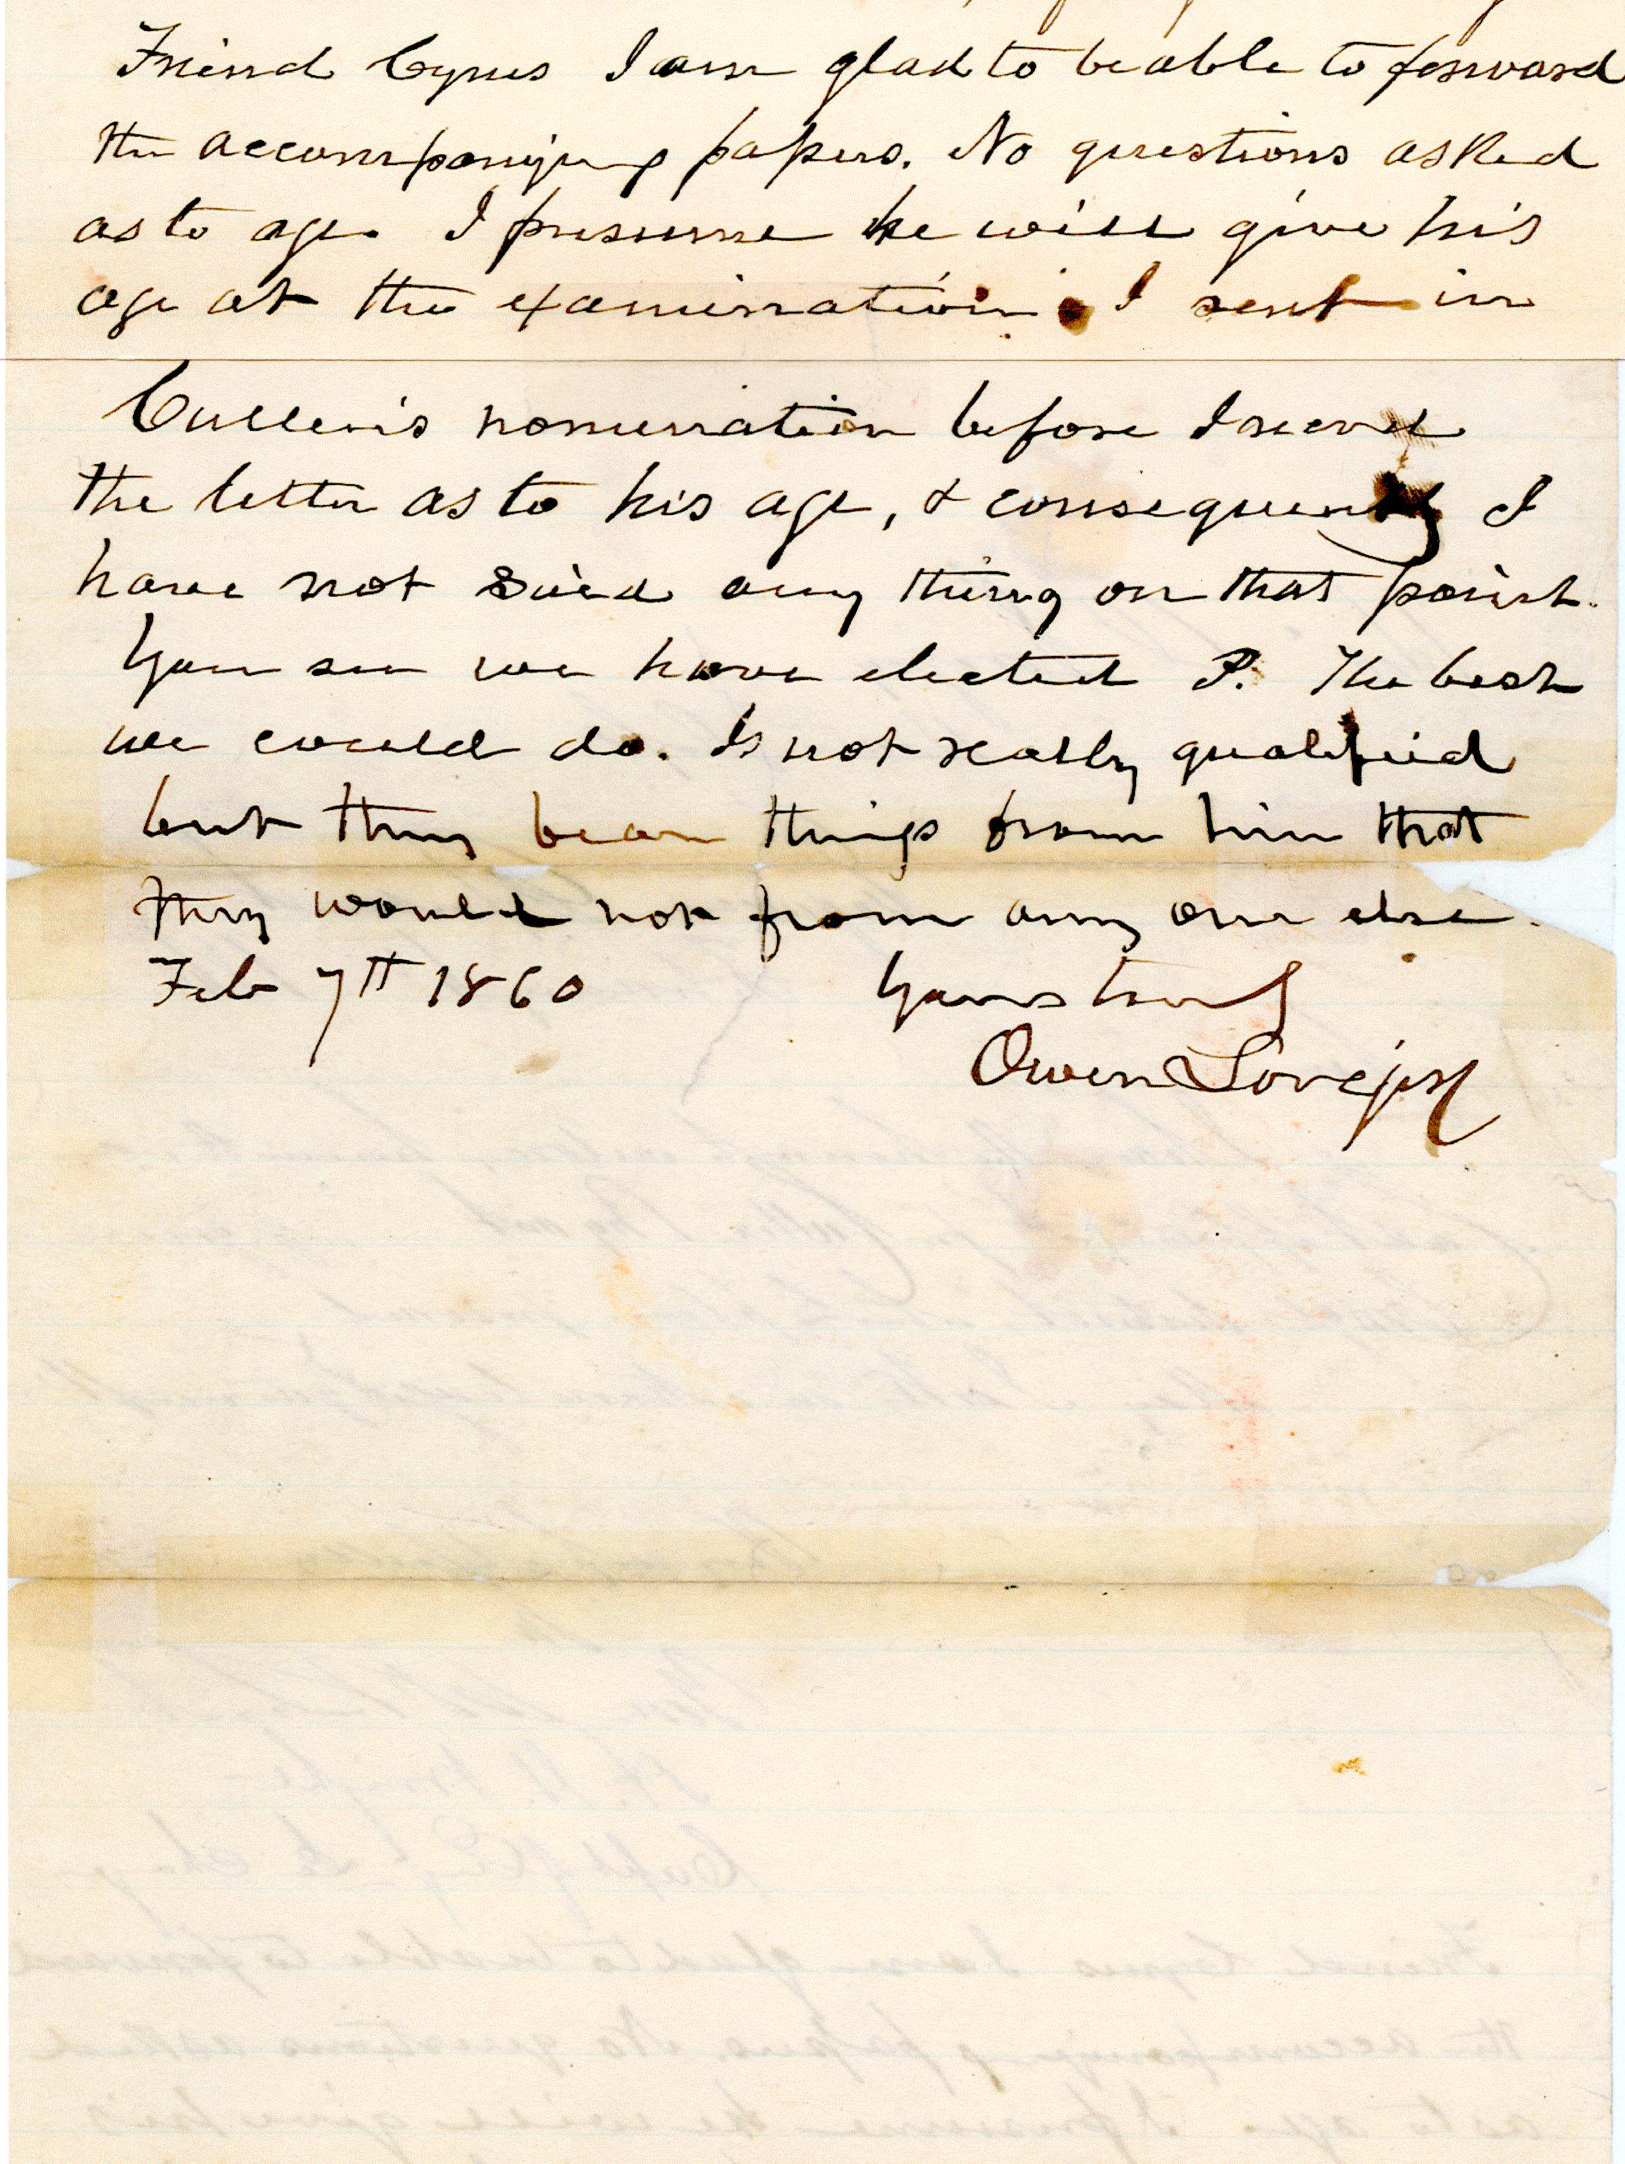 Friend Cyrus I am glad to be able to forward
the accompanying papers. No questions asked
as to age. I presume he will give his
age at the examination. I sent in
Cullen's nomination before I recvd
the letter as to his age, & consequently I
have not said any thing on that point.
You see we have elected P. The best
we could do. Is not really qualified
but they bear things from him that
they would not from any one else.
Feb 7th 1860 Yours truly
Owen Lovejoy